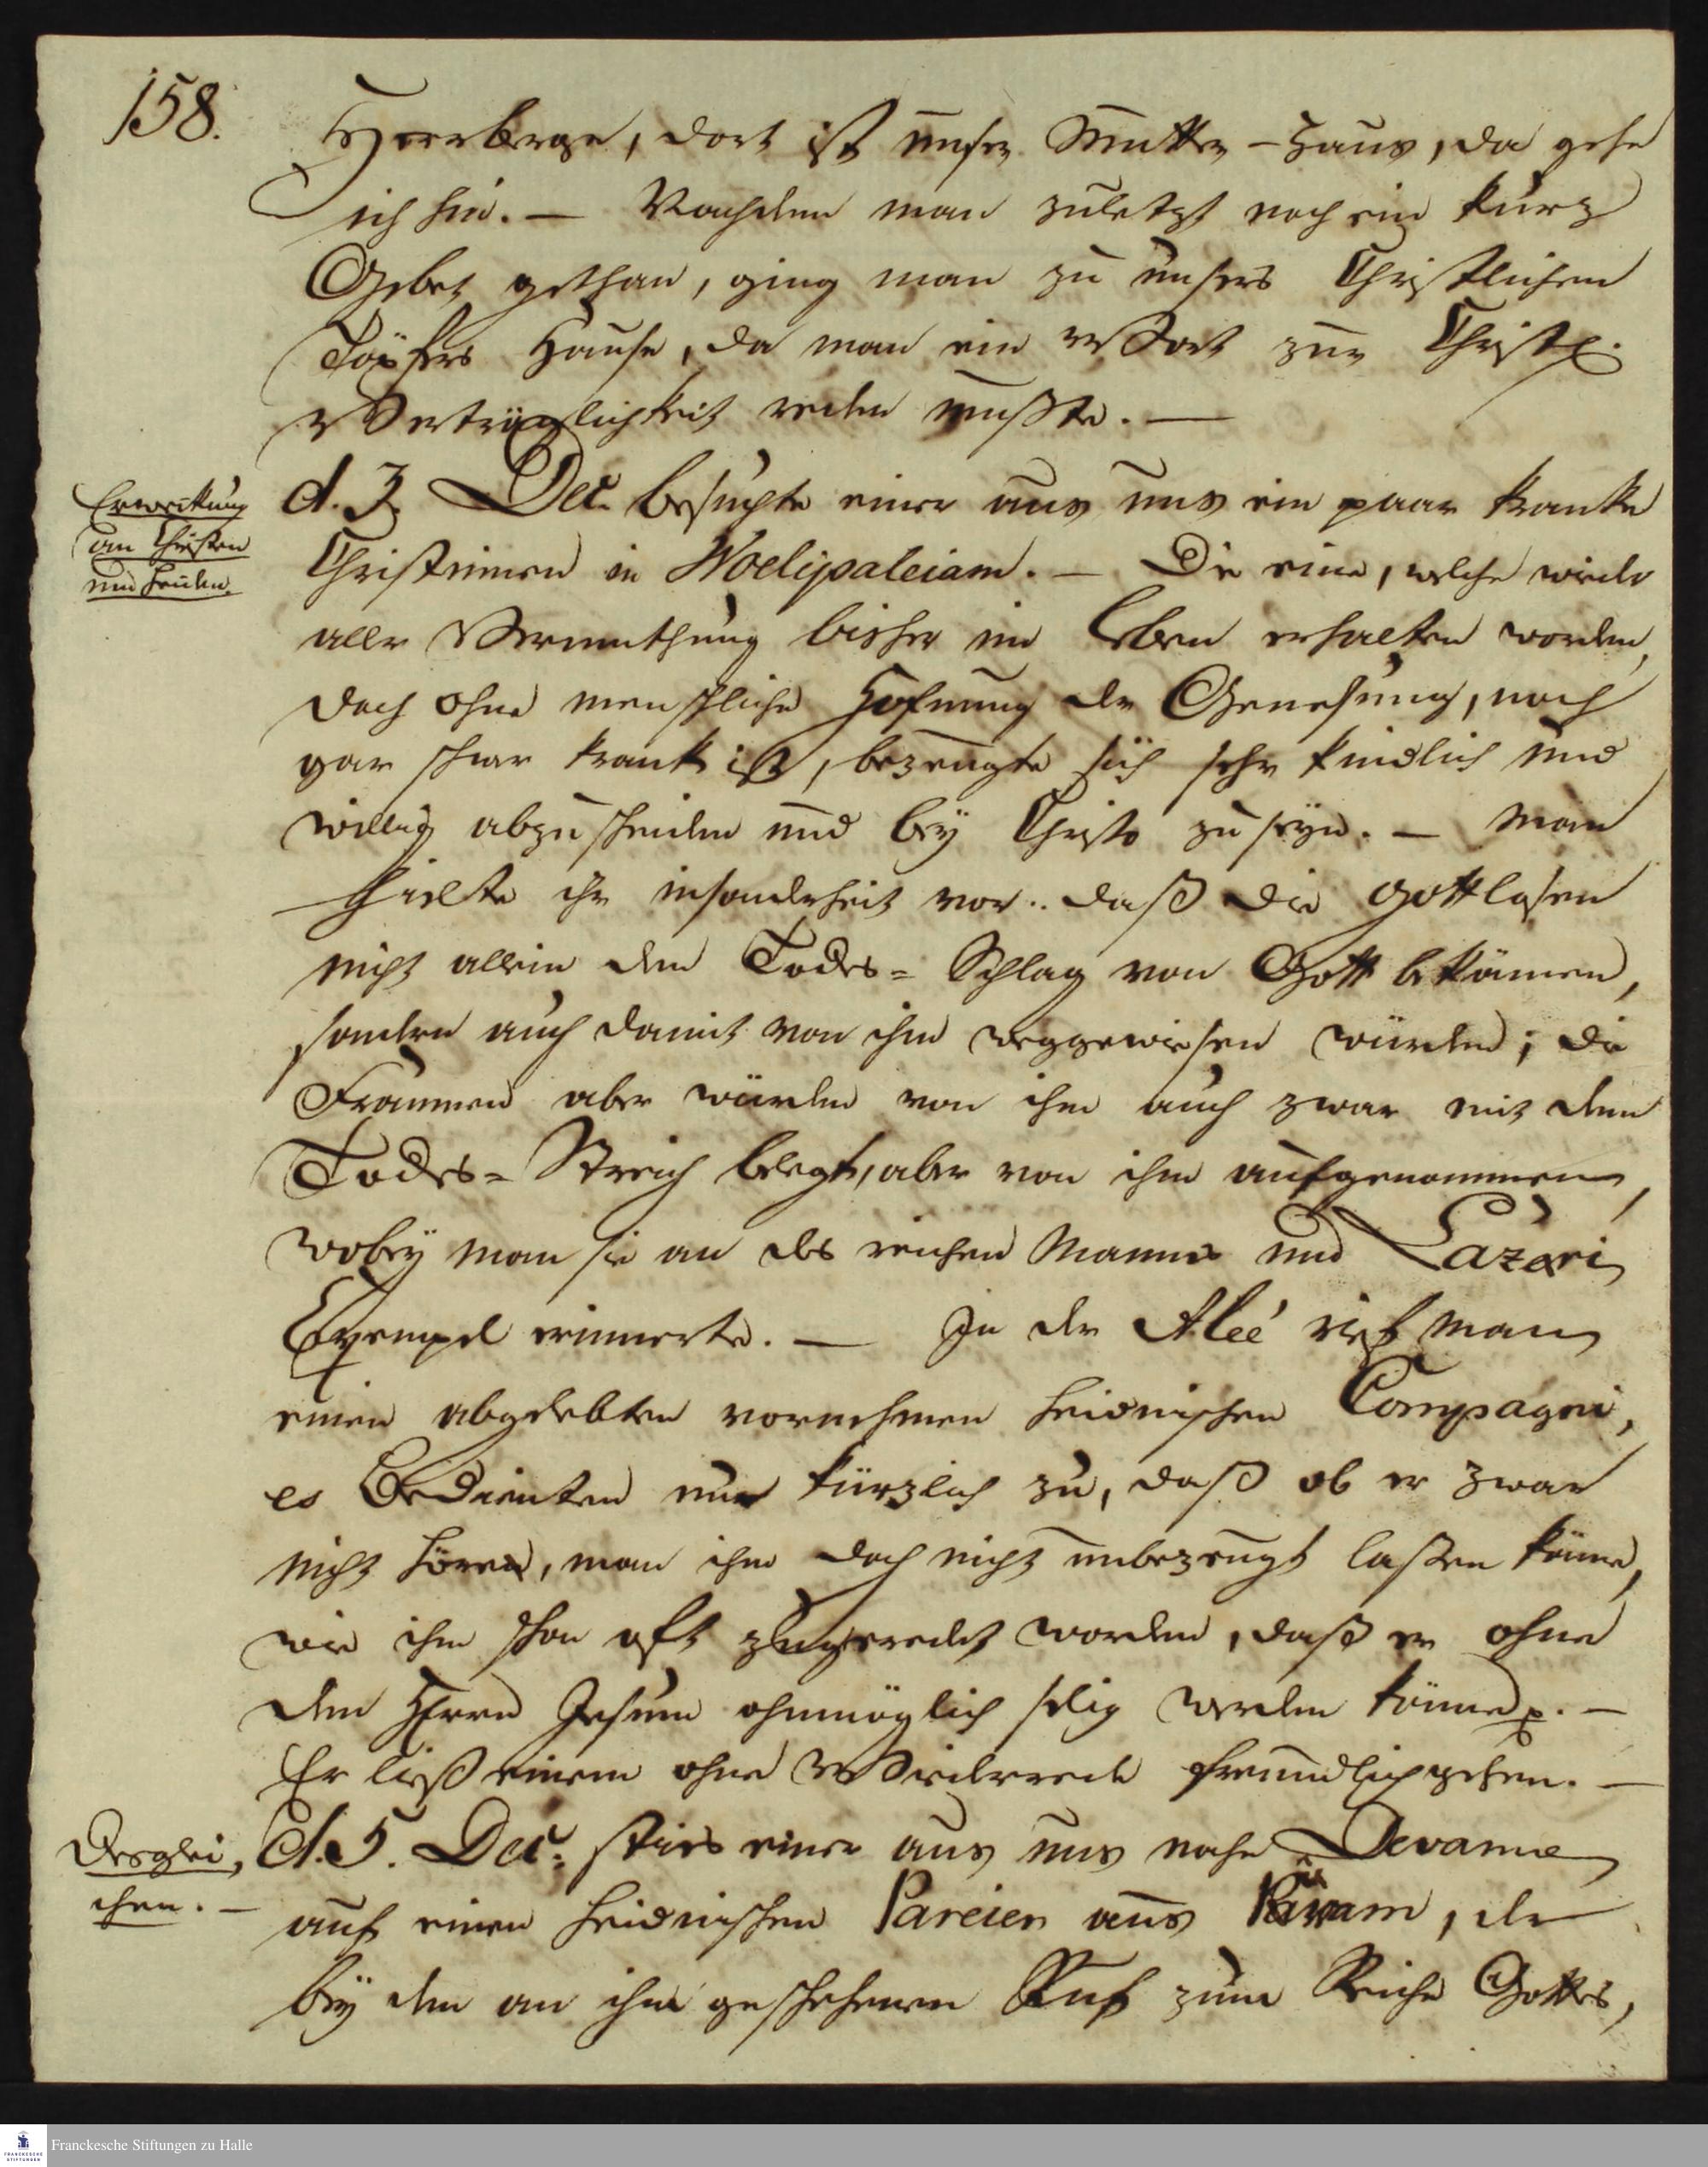 158.
Herrberge, dort ist unser Mutter-Haus, da gehe
ich hin. — Nachdem man zuletzt noch ein kurz
Gebet gethan, ging man zu unsers Christlichen
Töpfers Hause, da man ein Wort zur Christl.
Verträglichkeit reden mußte. —
Erweckung
an Christen
und Heiden.
d. 3. Dec. besuchte einer aus uns ein paar kranke
Christinnen in Woelipaleiam. — Die eine, welche wieder
aller Vermuthung bisher im Leben erhalten worden,
doch ohne menschliche Hofnung der Genesung, noch
gar schwer krank ist, bezeugte sich sehr kindlich und
willig abzuscheiden und bey Christo zu seyn. — Man
hielte ihr insonderheit vor.. daß die Gottlosen
nicht allein den Todes-Schlag von Gott bekämen,
sondern auch damit von ihm weggewiesen würden; die
Frommen aber würden von ihm auch zwar mit dem
Todes-Streich belegt, aber von ihm aufgenommen,
wobey man sie an des reichen Mannes und Lazari
Exempel erinnerte. — In der Aleé rief man
einen abgelebten vornehmen heidnischen Compagni,
es Bedienten nur kürzlich zu, daß ob er zwar
nicht hören, man ihn doch nicht unbezeugt laßen könne,
wie ihm schon oft zugeredet worden, daß er ohne
den HErrn Jesum ohnmöglich selig werden könne p. —
Er ließ einem ohne Wiederrede freundlich gehen. —
Desglei,
chen. —
d. 5. Dec. sties einer aus uns nahe Devane
auf einen heidnischen Pareier aus, der
bey dem an ihm geschehenen Ruf zum Reiche Gottes,
Franckesche Stiftungen zu Halle
FRANCKESCHE
STIFTUNGEN